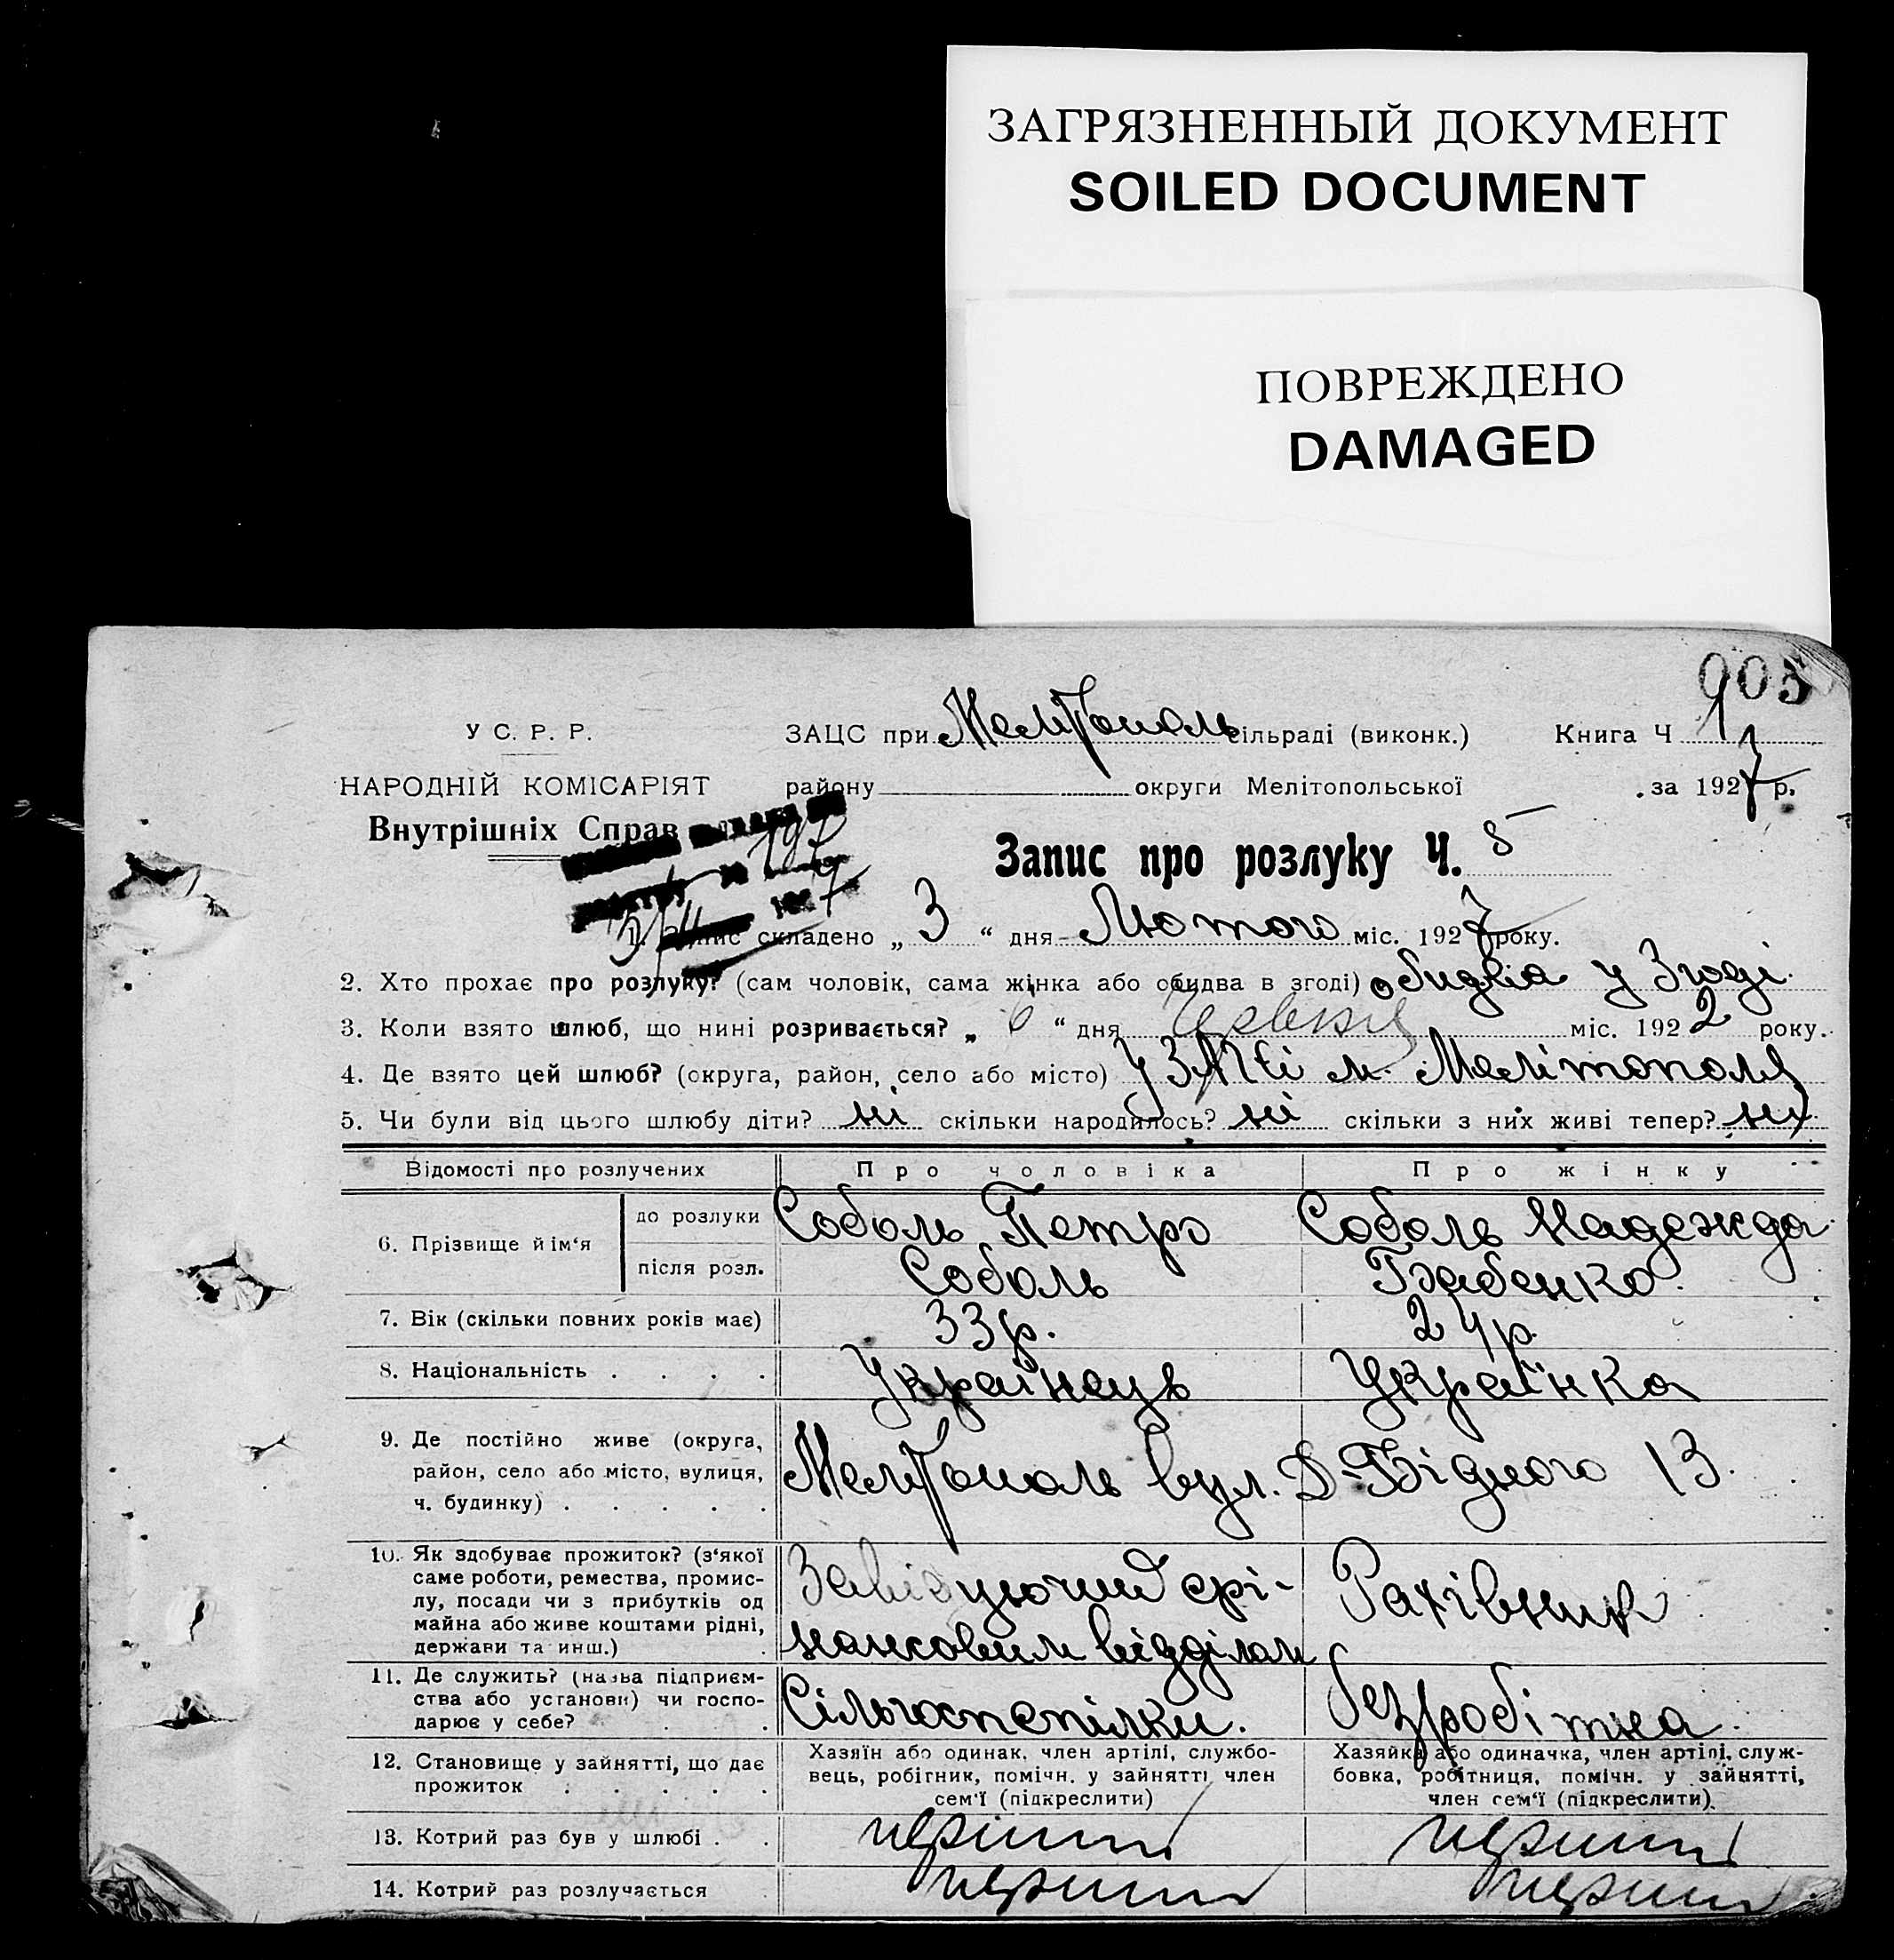 ЗАГРЯЗНЕННЫЙ ДОКУМЕНТ
SOILED DOCUMENT
ПОВРЕЖДЕНО
DAMAGED
005
У С. Р. Р.
ЗАЦС при Мелітополь сільраді (виконк.)
Книга Ч 1
НАРОДНІЙ КОМІСАРІЯТ
району округи Мелітопольської
за 1927 р.
Внутрішніх Справ
Запис про розлуку Ч. 5
1. Запис складено „ 3 “ дня Лютого міс. 1927 року.
2. Хто прохає про розлуку? (сам чоловік, сама жінка або обидва в згоді) обидва у Згоді
3. Коли взято шлюб, що нині розривається? „ 6 “ дня Червня міс. 1922 року.
4. Де взято цей шлюб? (округа, район, село або місто) у ЗАГСі м. Мелітополя
5. Чи були від цього шлюбу діти? ні скільки народилось? ні скільки з них живі тепер? ні
Відомості про розлучених
Про чоловіка
Про жінку
6. Прізвище й ім‘я
до розлуки
Соболь Петро
Соболь Надежда
після розл.
Соболь
Бабенко
7. Вік (скільки повних років має)
33 р.
24 р.
8. Національність . . . .
Українець
Українка
9. Де постійно живе (округа,
район, село або місто, вулиця,
ч. будинку) . . . . .
Мелітополь вул. Д-Бідного 13.
10. Як здобуває прожиток? (з‘якої
саме роботи, ремества, промис-
лу, посади чи з прибутків од
майна або живе коштами рідні,
держави та инш.) .
Завідуючий фі-
нансовим відділом
Рахівник
11. Де служить? (назва підприєм-
ства або установи) чи госпо-
дарює у себе? . . .
Сільгоспспілки.
безробітна.
12. Становище у зайнятті, що дає
прожиток . . . . .
Хазяїн або одинак, член артілі, службо-
вець, робітник, помічн. у зайнятті член
сем‘ї (підкреслити)
Хазяйка або одиначка, член артілі, служ-
бовка, робітниця, помічн. у зайнятті,
член сем‘ї (підкреслити).
13. Котрий раз був у шлюбі . .
перший
перший
14. Котрий раз розлучається
перший
перший